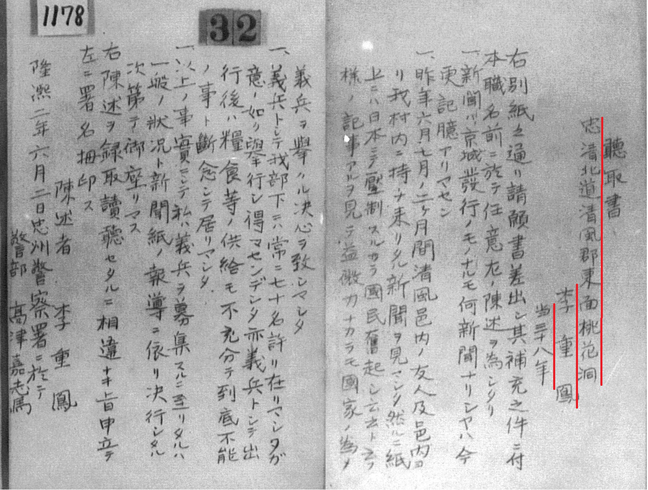 1178
32
聽取書
忠清北道清風郡東面桃花洞
李重鳳
当三十八年
右別紙之通リ請願書差出シ其補充之件ニ付
本職名前ニ於テ任意左ノ陳述ヲ為シタリ
一、新聞ハ京城發行ノモノナルモ何新聞ナリシヤハ今
更記臆アリマセン
一、昨年六月七月ノ二ヶ月間清風邑内ノ友人及邑内ヨ
リ我村内ニ持チ来リタル新聞ヲ見マシタ然ルニ紙
上ニハ日本ニテ壓制スルカラ國民奮起シ云々ト云フ
様ノ記事アルヲ見テ益微力ナカラモ國家ノ為メ
義兵ヲ擧クル決心ヲ致シマシタ
一、義兵トシテ我部下ニハ常ニ七十名許リ在リマシタガ
意ノ如ク擧行シ得マセンデシタ亦義兵トシテ出
行後ハ糧食等ノ供給モ不充分テ到底不能
ノ事ト斷念シテ居リマシタ
一、以上ノ事實ニシテ私ハ義兵ヲ募集スルニ至リタルハ
一般ノ状況ト新聞紙ノ報導ニ依リ決行シタル
次第テ御座リマス
右陳述ヲ録取讀聽セタルニ相違ナキ旨申立テ
左ニ署名拇印ス
隆熙二年六月二日忠州警察署ニ於テ
陳述者 李重鳳
警部 高津嘉志馬